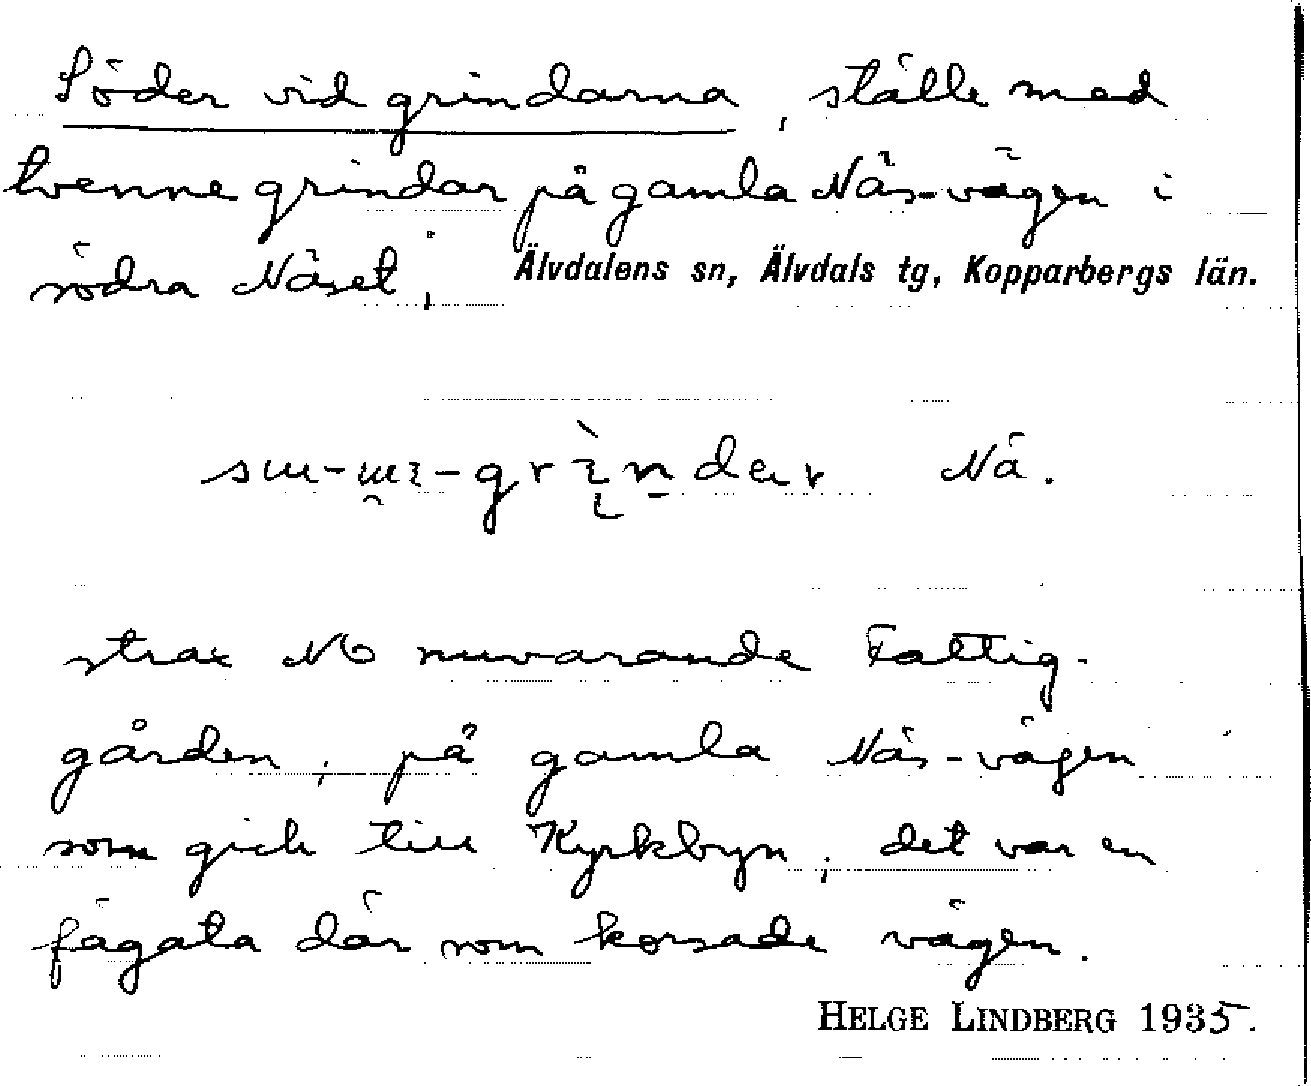 Söder vid grindarna, ställe med
tvenne grindar på gamla Näs-vägen i
södra Näset; Älvdalens sn, Älvdals tg, Kopparbergs län.
Nä.
strax NO nuvarande Fattig-
gården, på gamla Näs-vägen
som gick till Kyrkbyn; det var en
fägata där som korsade vägen.
HELGE LINDBERG 1935.